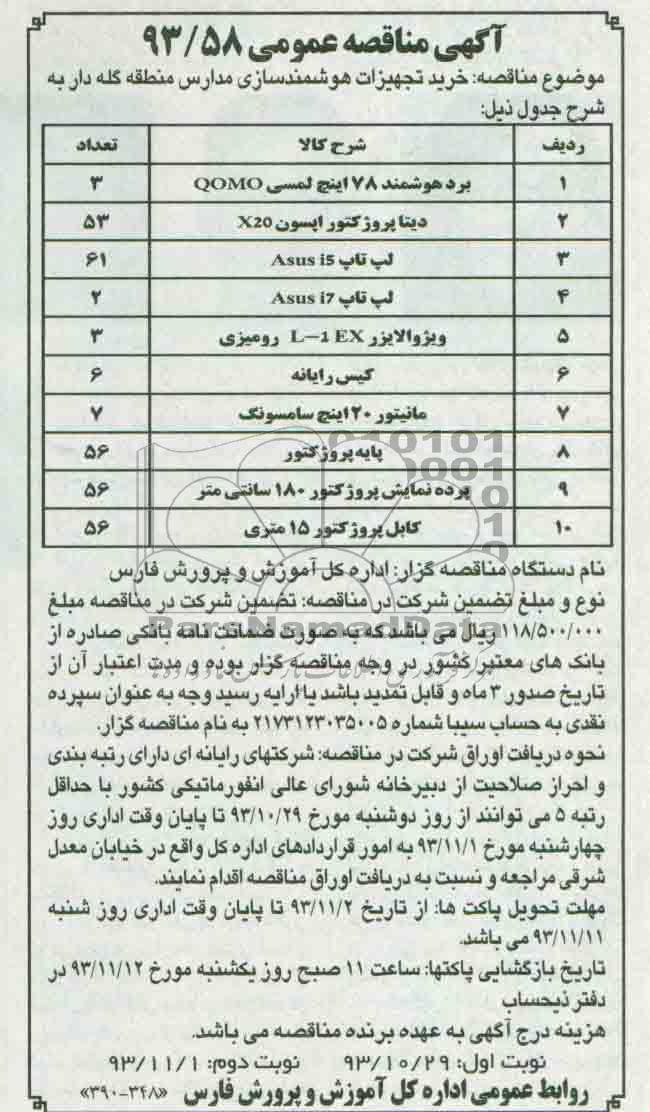 آگهی مناقصه عمومی ۹۳/۵۸
موضوع مناقصه: خرید تجهیزات هوشمندسازی مدارس منطقه گله دار به
شرح جدول ذیل:
ردیف شرح کالا تعداد
۱ برد هوشمند ۷۸ اینچ لمسی QOMO ۳
۲ دیتا پروژکتور اپسون X20 ۵۳
۳ لپ تاپ Asus i5 ۶۱
۴ لپ تاپ Asus i7 ۲
۵ ویژوالایزر L-1 EX رومیزی ۳
۶ کیس رایانه ۶
۷ مانیتور ۲۰ اینچ سامسونگ ۷
۸ پایه پروژکتور ۵۶
۹ پرده نمایش پروژکتور ۱۸۰ سانتی متر ۵۶
۱۰ کابل پروژکتور ۱۵ متری ۵۶
نام دستگاه مناقصه گزار: اداره کل آموزش و پرورش فارس
نوع و مبلغ تضمین شرکت در مناقصه: تضمین شرکت در مناقصه مبلغ
۱۱۸/۵۰۰/۰۰۰ ریال می باشد که به صورت ضمانت نامه بانکی صادره از
بانک های معتبر کشور در وجه مناقصه گزار بوده و مدت اعتبار آن از
تاریخ صدور ۳ ماه و قابل تمدید باشد یا ارایه رسید وجه به عنوان سپرده
نقدی به حساب سیبا شماره ۲۱۷۳۱۲۳۰۳۵۰۰۵ به نام مناقصه گزار.
نحوه دریافت اوراق شرکت در مناقصه: شرکتهای رایانه ای دارای رتبه بندی
و احراز صلاحیت از دبیرخانه شورای عالی انفورماتیکی کشور با حداقل
رتبه ۵ می توانند از روز دوشنبه مورخ ۹۳/۱۰/۲۹ تا پایان وقت اداری روز
چهارشنبه مورخ ۹۳/۱۱/۱ به امور قراردادهای اداره کل واقع در خیابان معدل
شرقی مراجعه و نسبت به دریافت اوراق مناقصه اقدام نمایند.
مهلت تحویل پاکت ها: از تاریخ ۹۳/۱۱/۲ تا پایان وقت اداری روز شنبه
۹۳/۱۱/۱۱ می باشد.
تاریخ بازگشایی پاکتها: ساعت ۱۱ صبح روز یکشنبه مورخ ۹۳/۱۱/۱۲ در
دفتر ذیحساب
هزینه درج آگهی به عهده برنده مناقصه می باشد.
نوبت اول: ۹۳/۱۰/۲۹ نوبت دوم: ۹۳/۱۱/۱
روابط عمومی اداره کل آموزش و پرورش فارس «۳۹۰-۳۴۸»
ParsNamadData